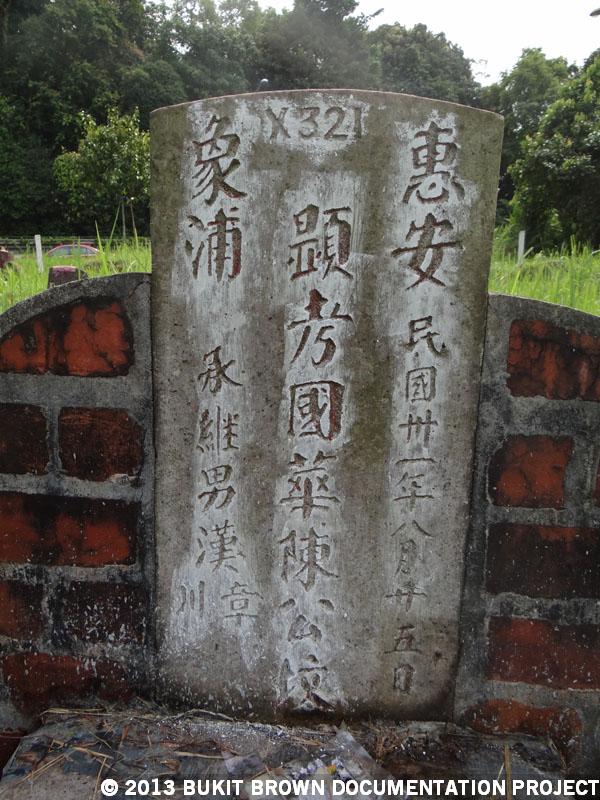 IX321
惠安
民國卅一年八月廿五日
顯考國華陳公坟
象浦
承繼男漢章
川
© 2013 BUKIT BROWN DOCUMENTATION PROJECT